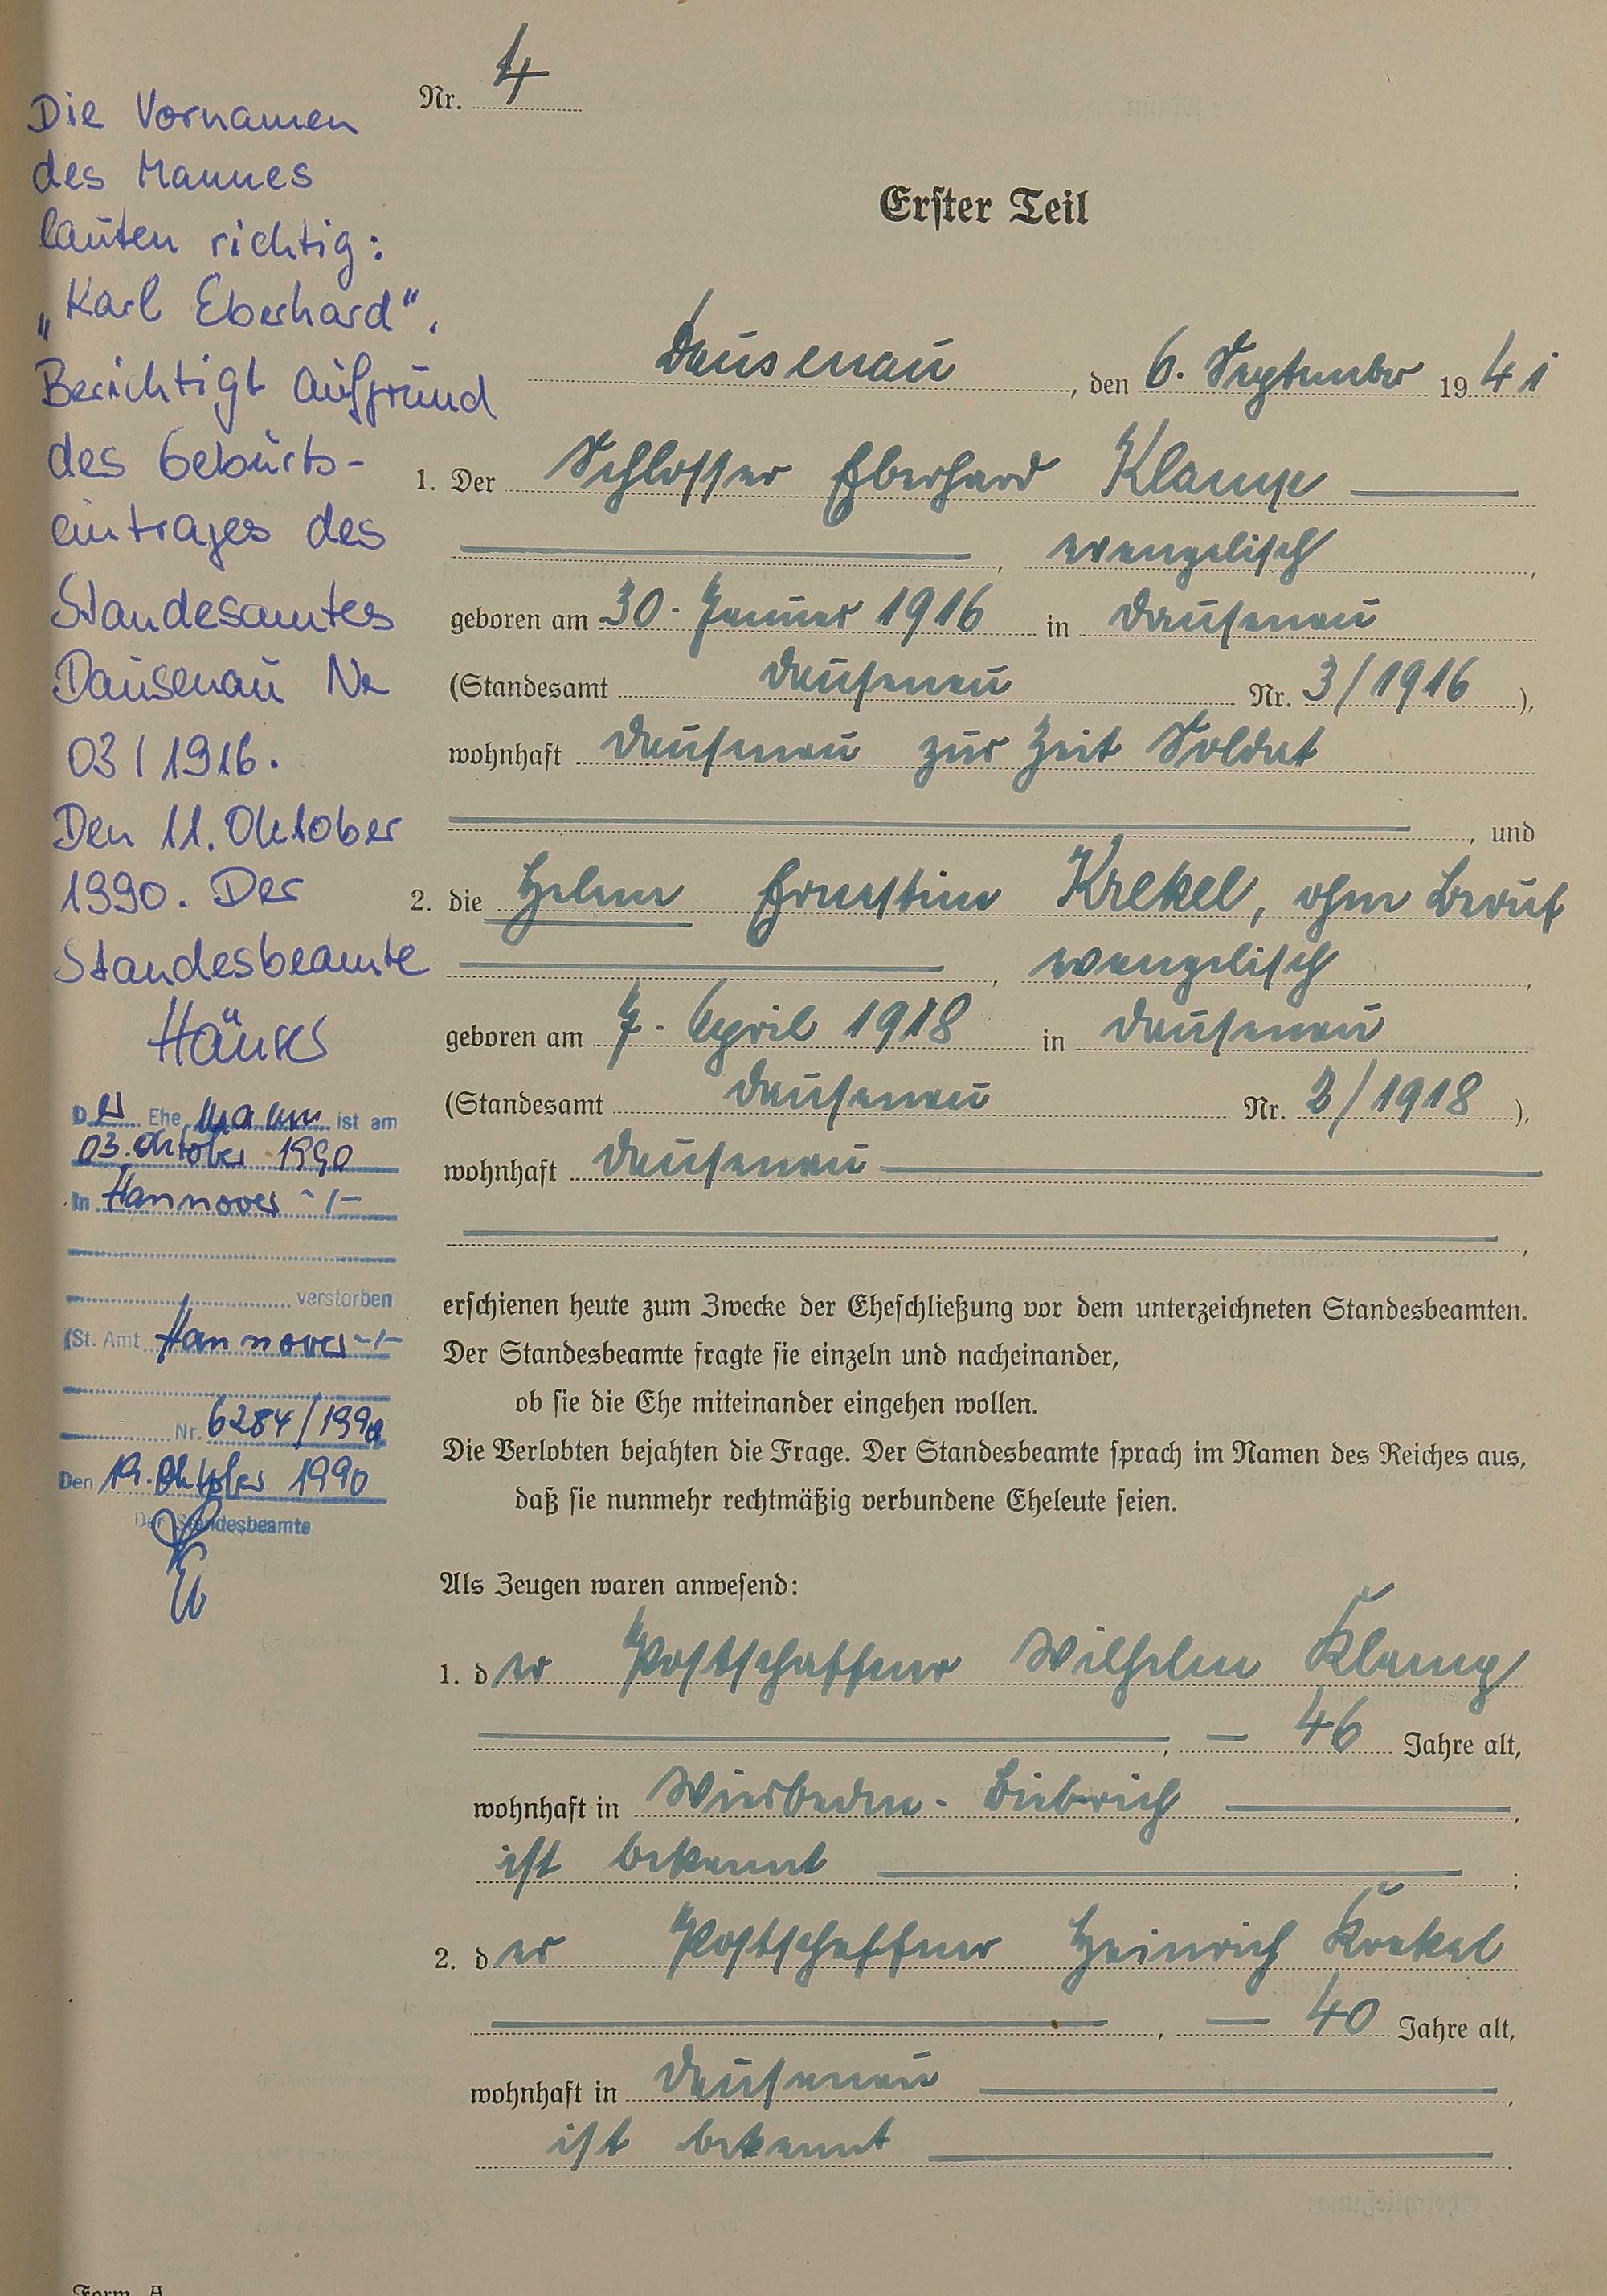 Nr. 4
Erster Teil
Dausenau, den 6. September 1941
1. Der Schlosser Eberhard Klamp
, evangelisch,
geboren am 30. Januar 1916 in Dausenau
(Standesamt Dausenau Nr. 3/1916),
wohnhaft Dausenau zur Zeit Soldat
, und
2. die Helene Ernestine Krekel, ohne Beruf
, evangelisch,
geboren am 7. April 1918 in Dausenau
(Standesamt Dausenau Nr. 2/1918),
wohnhaft Dausenau
,
erschienen heute zum Zwecke der Eheschließung vor dem unterzeichneten Standesbeamten.
Der Standesbeamte fragte sie einzeln und nacheinander,
ob sie die Ehe miteinander eingehen wollen.
Die Verlobten bejahten die Frage. Der Standesbeamte sprach im Namen des Reiches aus,
daß sie nunmehr rechtmäßig verbundene Eheleute seien.
Als Zeugen waren anwesend:
1. der Postschaffner Wilhelm Klamp
, — 46 Jahre alt,
wohnhaft in Wiesbaden-Biebrich,
ist bekannt;
2. der Postschaffner Heinrich Krekel
, — 40 Jahre alt,
wohnhaft in Dausenau,
ist bekannt.
Die Vornamen
des Mannes
lauten richtig:
„Karl Eberhard“.
Berichtigt aufgrund
des Geburts-
eintrages des
Standesamtes
Dausenau Nr
03/1916.
Den 11. Oktober
1990. Der
Standesbeamte
Der Ehemann ist am
03. Oktober 1990
in Hannover -/-
verstorben
(St. Amt Hannover -/-
Nr. 6284/1990
Den 19. Oktober 1990
Der Standesbeamte
Form. A